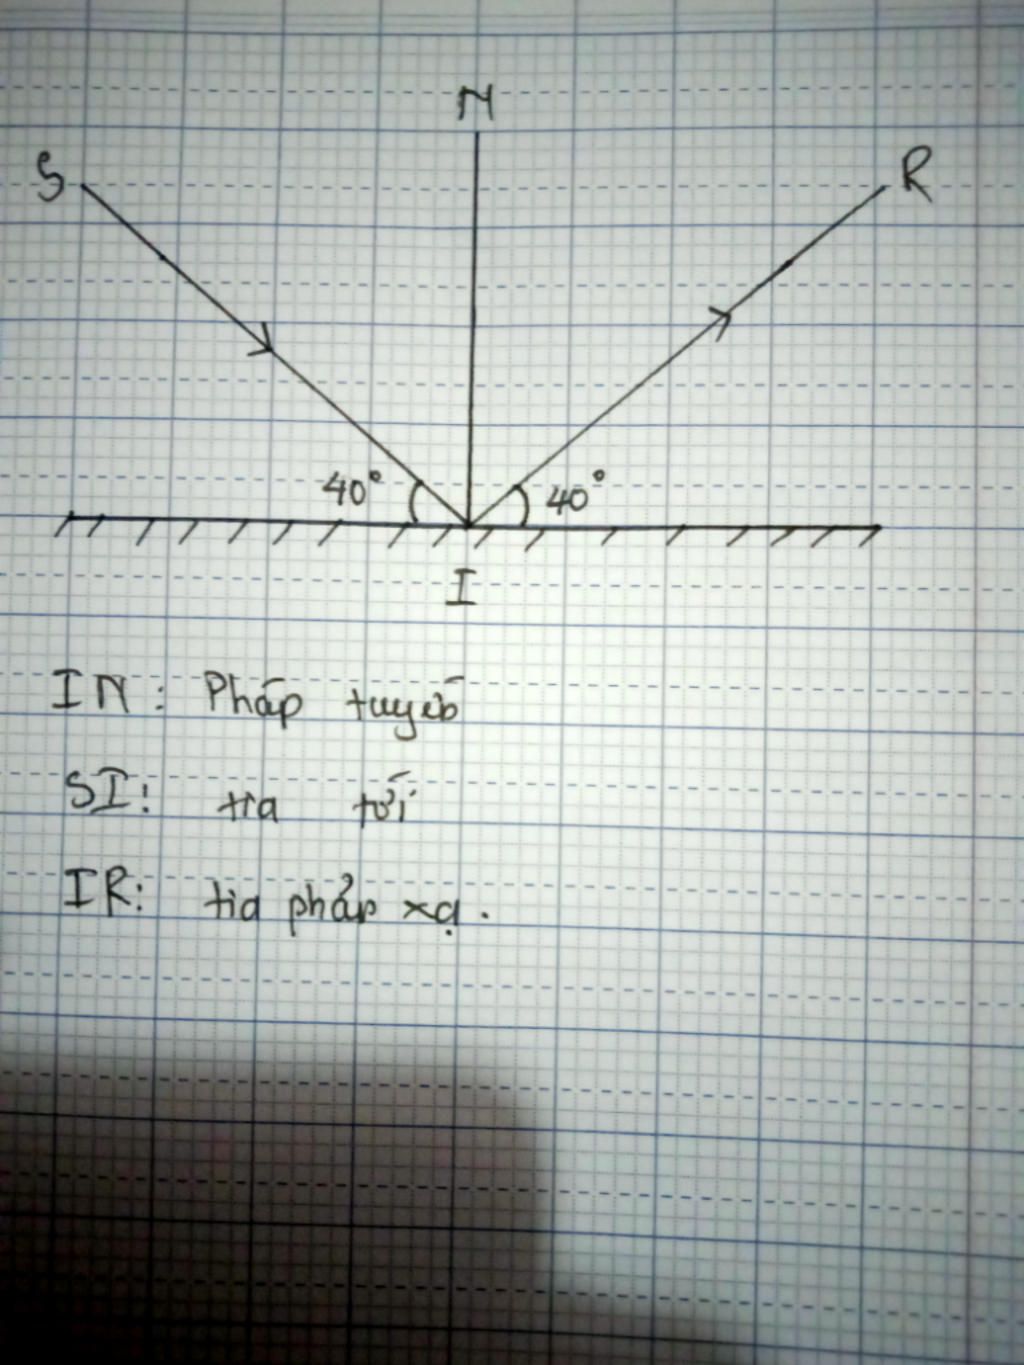 N
S
R
40°
40°
I
IN: Pháp tuyến
SI: tia tới
IR: tia phản xạ.